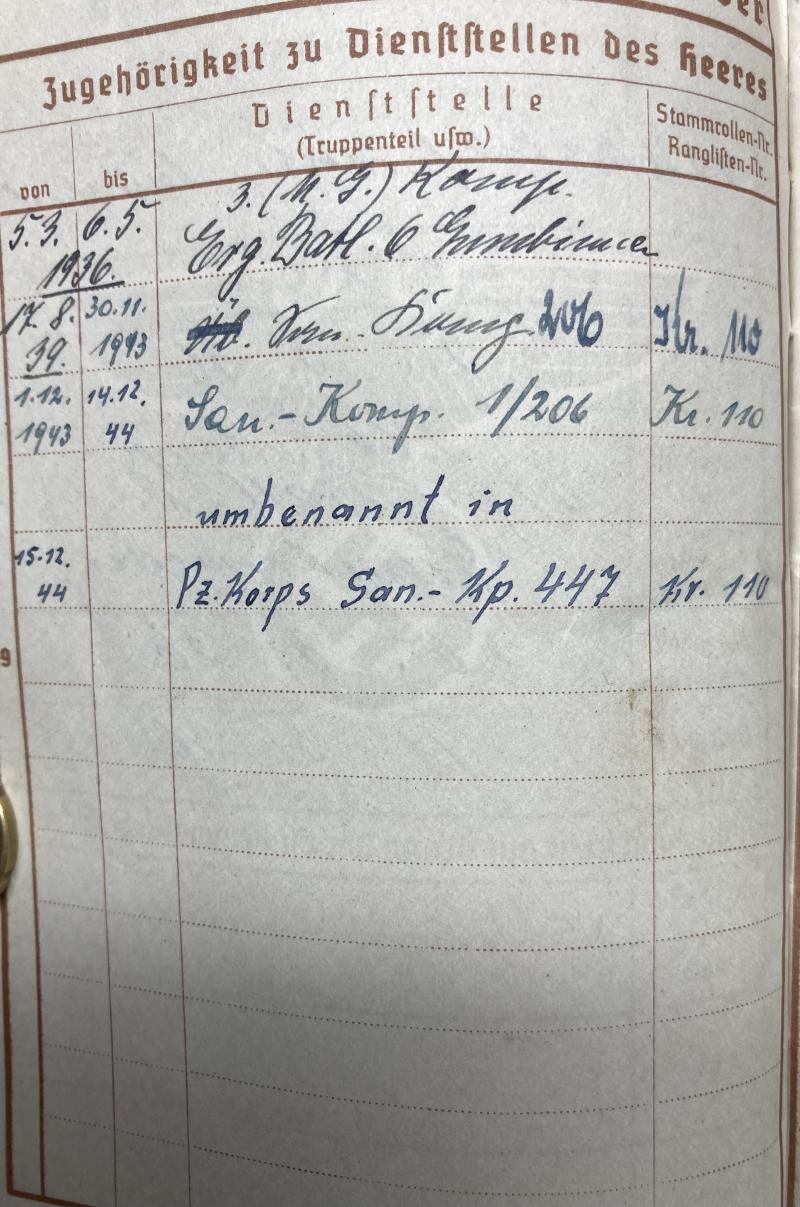 Zugehörigkeit zu Dienststellen des Heeres
von
bis
Dienststelle
(Truppenteil usw.)
Stammrollen-Nr.
Ranglisten-Nr.
5.3. 6.5. 3. (M.G.) Komp.
1936. Erg. Batl. 6 Gumbinnen
17. 8. 30.11. San. Komp 206 Kr. 110
39. 1943
1.12. 14.12. San.-Komp. 1/206 Kr. 110
1943 44
umbenannt in
15.12.
44 Pz. Korps San.- Kp. 447 Kr. 110
9